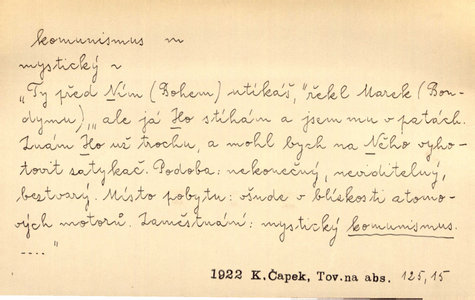 komunismus m
mystický ~
„Ty před Ním (Bohem) utíkáš,“ řekl Marek (Bon-
dymu), „ale já Ho stíhám a jsem mu v patách.
Znám Ho už trochu, a mohl bych na Něho vyho-
tovit zatykač. Podoba: nekonečný, neviditelný,
beztvarý. Místo pobytu: všude v blízkosti atomo-
vých motorů. Zaměstnání: mystický komunismus.
...."
1922 K.Čapek, Tov.na abs. 125,15